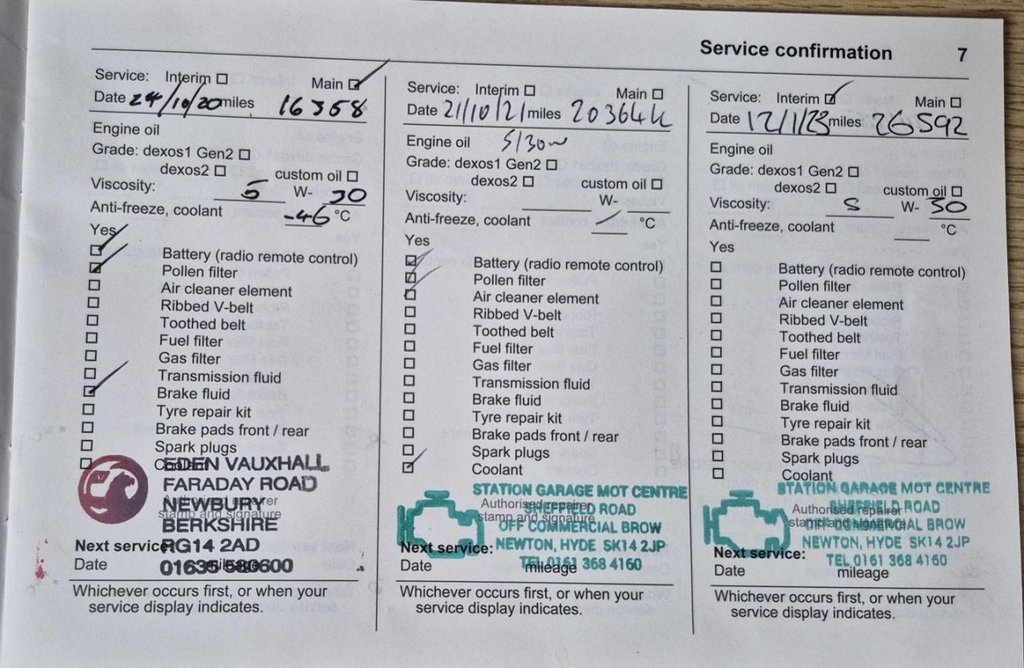 Service confirmation 7
Service: Interim Main
Date 24/10/20 miles 16358
Engine oil
Grade: dexos1 Gen2
dexos2 custom oil
Viscosity: 5 W- 30
Anti-freeze, coolant -46 °C
Yes
Battery (radio remote control)
Pollen filter
Air cleaner element
Ribbed V-belt
Toothed belt
Fuel filter
Gas filter
Transmission fluid
Brake fluid
Tyre repair kit
Brake pads front / rear
Spark plugs
Coolant
EDEN VAUXHALL
FARADAY ROAD
Authorised repairer
NEWBURY
stamp and signature
BERKSHIRE
Next service:
RG14 2AD
Date mileage
01635 580600
Whichever occurs first, or when your
service display indicates.
Service: Interim Main
Date 21/10/21 miles 20364
Engine oil 5/30w
Grade: dexos1 Gen2
dexos2 custom oil
Viscosity: W-
Anti-freeze, coolant °C
Yes
Battery (radio remote control)
Pollen filter
Air cleaner element
Ribbed V-belt
Toothed belt
Fuel filter
Gas filter
Transmission fluid
Brake fluid
Tyre repair kit
Brake pads front / rear
Spark plugs
Coolant
STATION GARAGE MOT CENTRE
Authorised repairer
SHEFFIELD ROAD
stamp and signature
OFF COMMERCIAL BROW
Next service:
NEWTON, HYDE SK14 2JP
TEL 0161 368 4160
Date mileage
Whichever occurs first, or when your
service display indicates.
Service: Interim Main
Date 12/1/23 miles 26592
Engine oil
Grade: dexos1 Gen2
dexos2 custom oil
Viscosity: 5 W- 30
Anti-freeze, coolant °C
Yes
Battery (radio remote control)
Pollen filter
Air cleaner element
Ribbed V-belt
Toothed belt
Fuel filter
Gas filter
Transmission fluid
Brake fluid
Tyre repair kit
Brake pads front / rear
Spark plugs
Coolant
STATION GARAGE MOT CENTRE
SHEFFIELD ROAD
Authorised repairer
stamp and signature
OFF COMMERCIAL BROW
NEWTON, HYDE SK14 2JP
Next service:
TEL 0161 368 4160
Date mileage
Whichever occurs first, or when your
service display indicates.